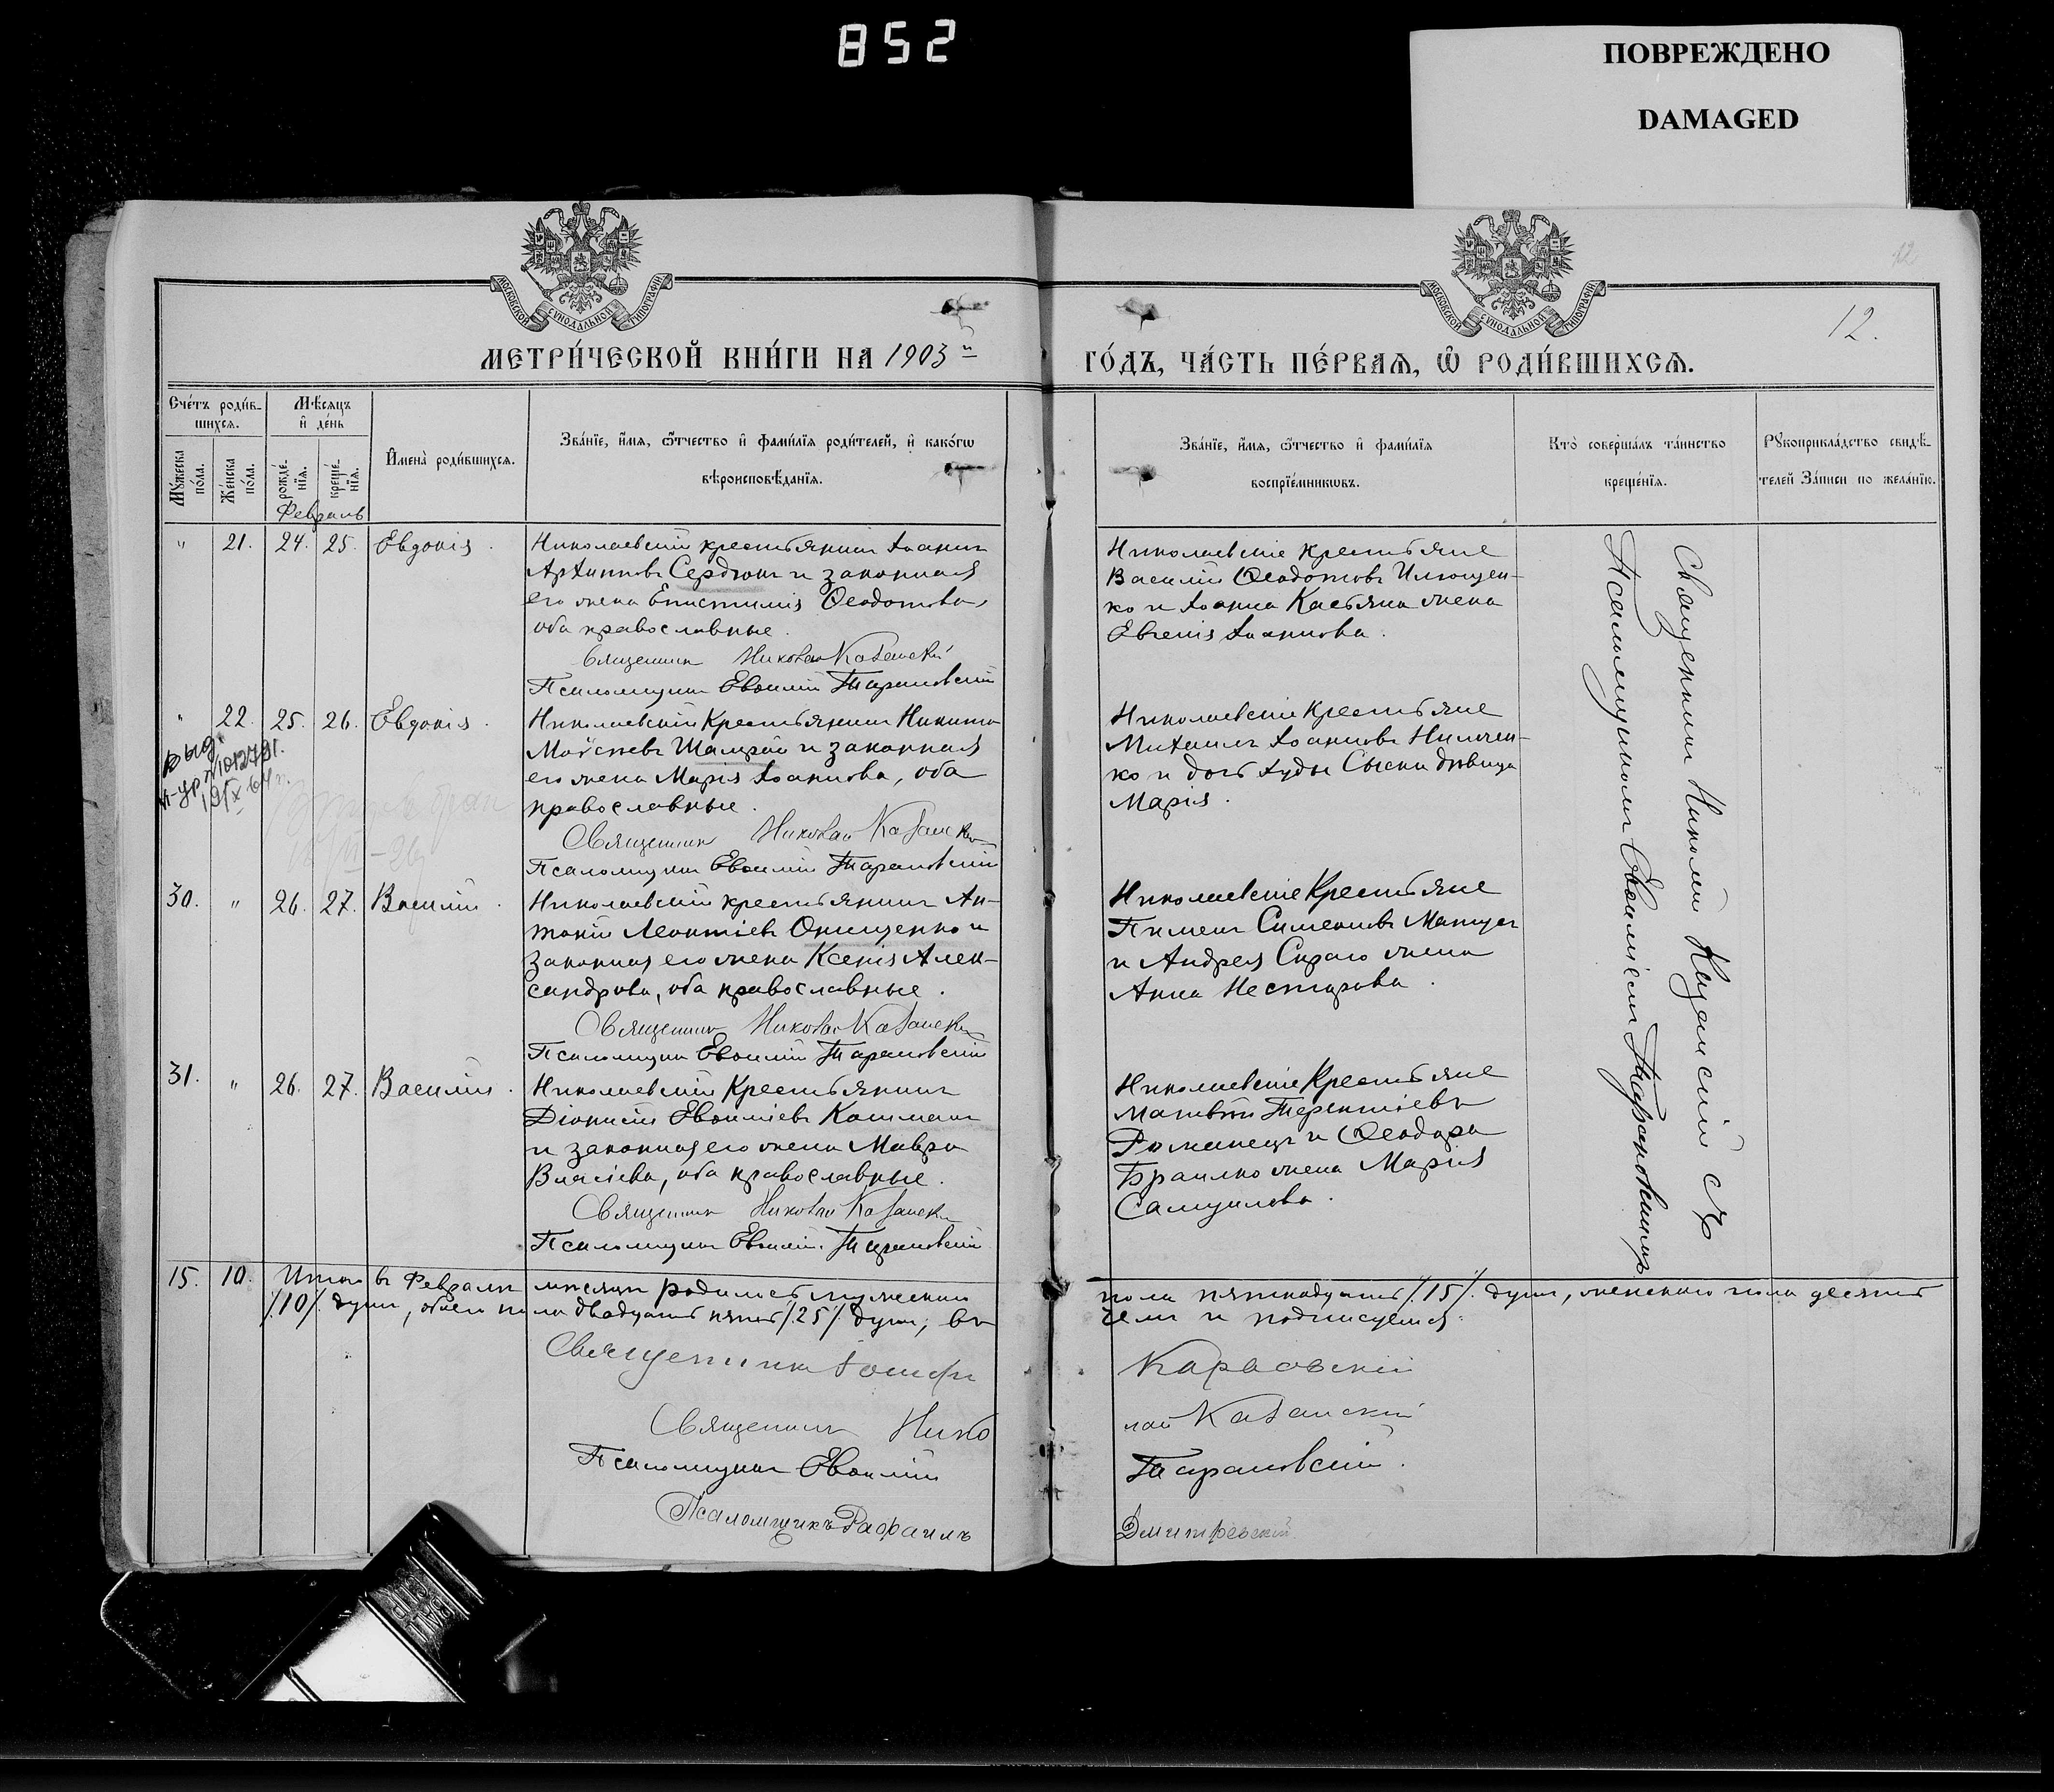 852
ПОВРЕЖДЕНО
DAMAGED
МОСКОВСКОЙ СѴНОДАЛЬНОЙ ТИПОГРАФІИ
МОСКОВСКОЙ СѴНОДАЛЬНОЙ ТИПОГРАФІИ
12
12.
МЕТРИ́ЧЕСКОЙ КНИ́ГИ НА 1903 й
ГО́ДЪ, ЧА́СТЬ ПЕ́РВАѦ, Ѡ҆ РОДИ́ВШИХСѦ.
Сче́тъ роди́в-
шихсѧ.
Мꙋ́жеска по́ла.
Же́нска по́ла.
Мѣ́сѧцъ
и҆ де́нь
рожде́-
нїѧ.
креще́-
нїѧ.
Февраль
И҆мена̀ роди́вшихсѧ.
Зва́нїе, и҆́мѧ, ѻ҆́тчество и҆ фами́лїѧ роди́телей, и҆ како́гѡ
вѣроисповѣ́данїѧ.
Зва́нїе, и҆́мѧ, ѻ҆́тчество и҆ фами́лїѧ
воспрїе́мникѡвъ.
Кто̀ соверша́лъ та́инство
креще́нїѧ.
Рꙋкоприкла́дство свидѣ́-
телей За́писи по жела́нїю.
" 21. 24. 25. Евдокія.
Николаевскій крестьянинъ Іоаннъ
Архиповъ Сердюкъ и законная
его жена Епистимія Ѳеодотова,
оба православные.
Священникъ Николай Казанскій
Псаломщикъ Евѳимій Тарановскій
Николаевскіе крестьяне
Василій Ѳеодотовъ Ильющен-
ко и Іоанна Касьяна жена
Евгенія Іоаннова.
" 22. 25. 26. Евдокія.
Николаевскій Крестьянинъ Никита
Моѵсеевъ Шамрай и законная
его жена Марія Іоаннова, оба
православные.
Священникъ Николай Казанскій
Псаломщикъ Евѳимій Тарановскій
Николаевскіе Крестьяне
Михаилъ Іоанновъ Нильчен-
ко и дочь Іуды Сыска дѣвица
Марія.
Выд.
30. " 26. 27. Василій.
Николаевскій крестьянинъ Ан-
тоній Леонтіевъ Онищенко и
законная его жена Ксенія Алек-
сандрова, оба православные.
Священникъ Николай Казанскій
Псаломщикъ Евѳимій Тарановскій
Николаевскіе Крестьяне
Пименъ Симеоновъ Мацуг
и Андрея Скраго жена
Анна Несторова.
31. " 26. 27. Василій.
Николаевскій Крестьянинъ
Діонисій Евѳиміевъ Кошманъ
и законная его жена Мавра
Власіева, оба православные.
Священникъ Николай Казанскій
Псаломщикъ Евѳимій Тарановскій
Николаевскіе Крестьяне
Матвѣй Терентіевъ
Романецъ и Ѳеодора
Браилко жена Марія
Самуилова.
Священникъ Николай Казанскій съ
Псаломщикомъ Евѳиміемъ Тарановскимъ
15. 10. Итого въ Февралѣ мѣсяцѣ родилось мужескаго пола пятнадцать /.15/. душъ, женскаго пола десять
/.10/. душъ, обоего пола двадцать пять /.25/. душъ, въ чемъ и подписуемся:
Священникъ Іосифъ Карасовскій
Священникъ Николай Казанскій
Псаломщикъ Евѳимій Тарановскій.
Псаломщикъ Рафаилъ Дмитревскій